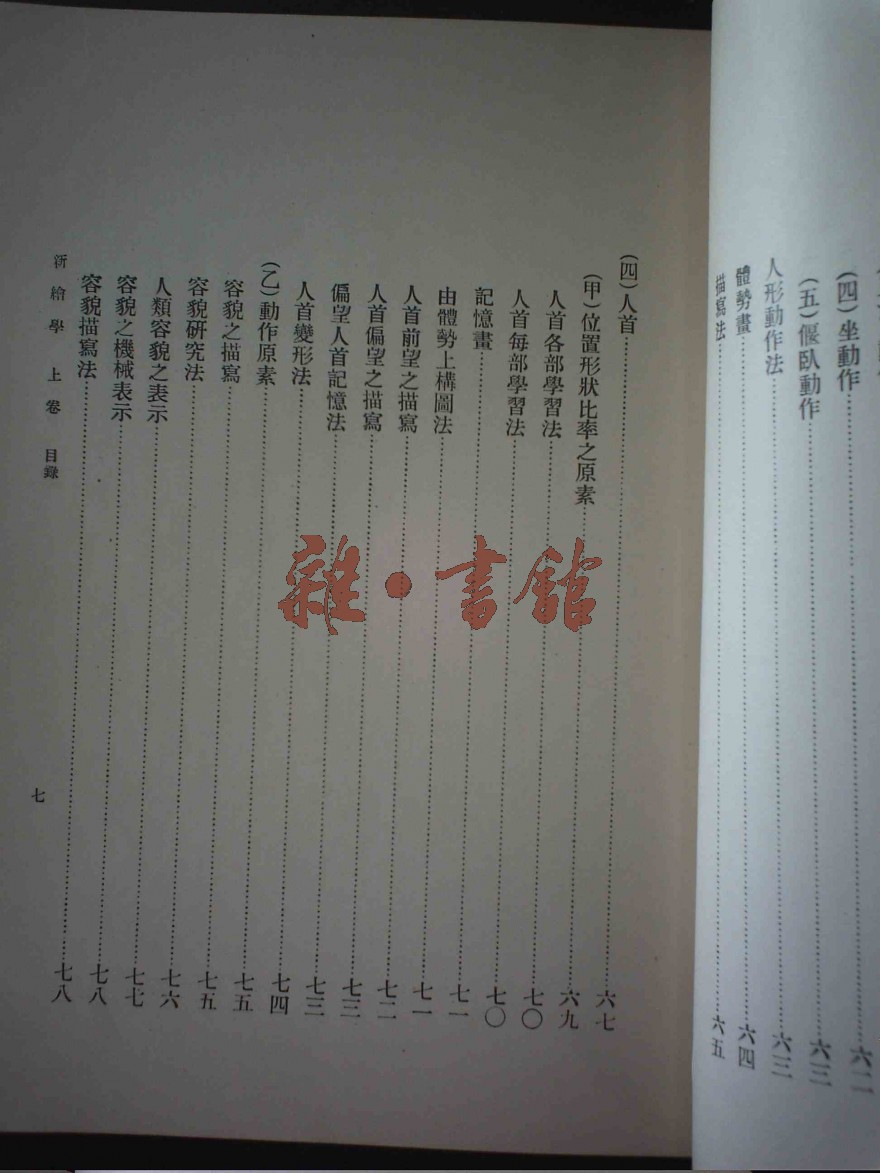 (四)坐動作……六二
(五)偃臥動作……六三
人形動作法……六三
體勢畫……六四
描寫法……六五
(四)人首……六七
(甲)位置形狀比率之原素……六九
人首各部學習法……七〇
人首每部學習法……七〇
記憶畫……七一
由體勢上構圖法……七一
人首前望之描寫……七二
人首偏望之描寫……七三
偏望人首記憶法……七三
人首變形法……七四
(乙)動作原素……七五
容貌之描寫……七五
容貌研究法……七六
人類容貌之表示……七七
容貌之機械表示……七八
容貌描寫法……七八
新繪學 上卷 目錄
七
雜·書館